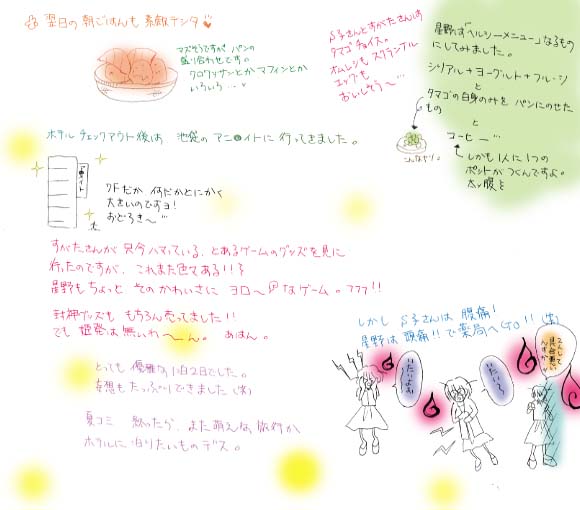 翌日の朝ごはんも素敵デシタ
マズそうですが パンの
盛り合わせです。
クロワッサンとか マフィンとか
いろいろ…
S子さんとすがたさんは
タマゴチョイス。
オムレツもスクランブル
エッグも
おいしそう〜…
星野は「ヘルシーメニュー」なるもの
にしてみました。
シリアル+ヨーグルト+フルーツ
と
タマゴの白身のみを パンにのせた
もの
と
コーヒー…
しかも1人に1つの
ポットがつくんですよ。
太っ腹を
こんなヤツ
ホテルチェックアウト後は 池袋の アニ●イトに 行ってきました。
7Fだか 何だかとにかく
大きいのですヨ!
おどろき〜…
すがたさんが 只今ハマっている、とあるゲームのグッズを見に
行ったのですが、これまた色々ある!!
星野もちょっと そのかわいさに ヨロ〜 なゲーム。フフフ!!
封神グッズも もちろん売ってました!!
でも 楊発は無いわ〜ん。あはん。
とっても 優雅な 1泊2日でした。
妄想もたっぷりできました(笑)
夏コミ 受かったら、また萌えな 旅行か
ホテルに泊りたいものデス。
しかし S子さんは 腹痛!
星野は 頭痛!!で薬局へGO!!(笑)
いたいよぉ
いたいっ